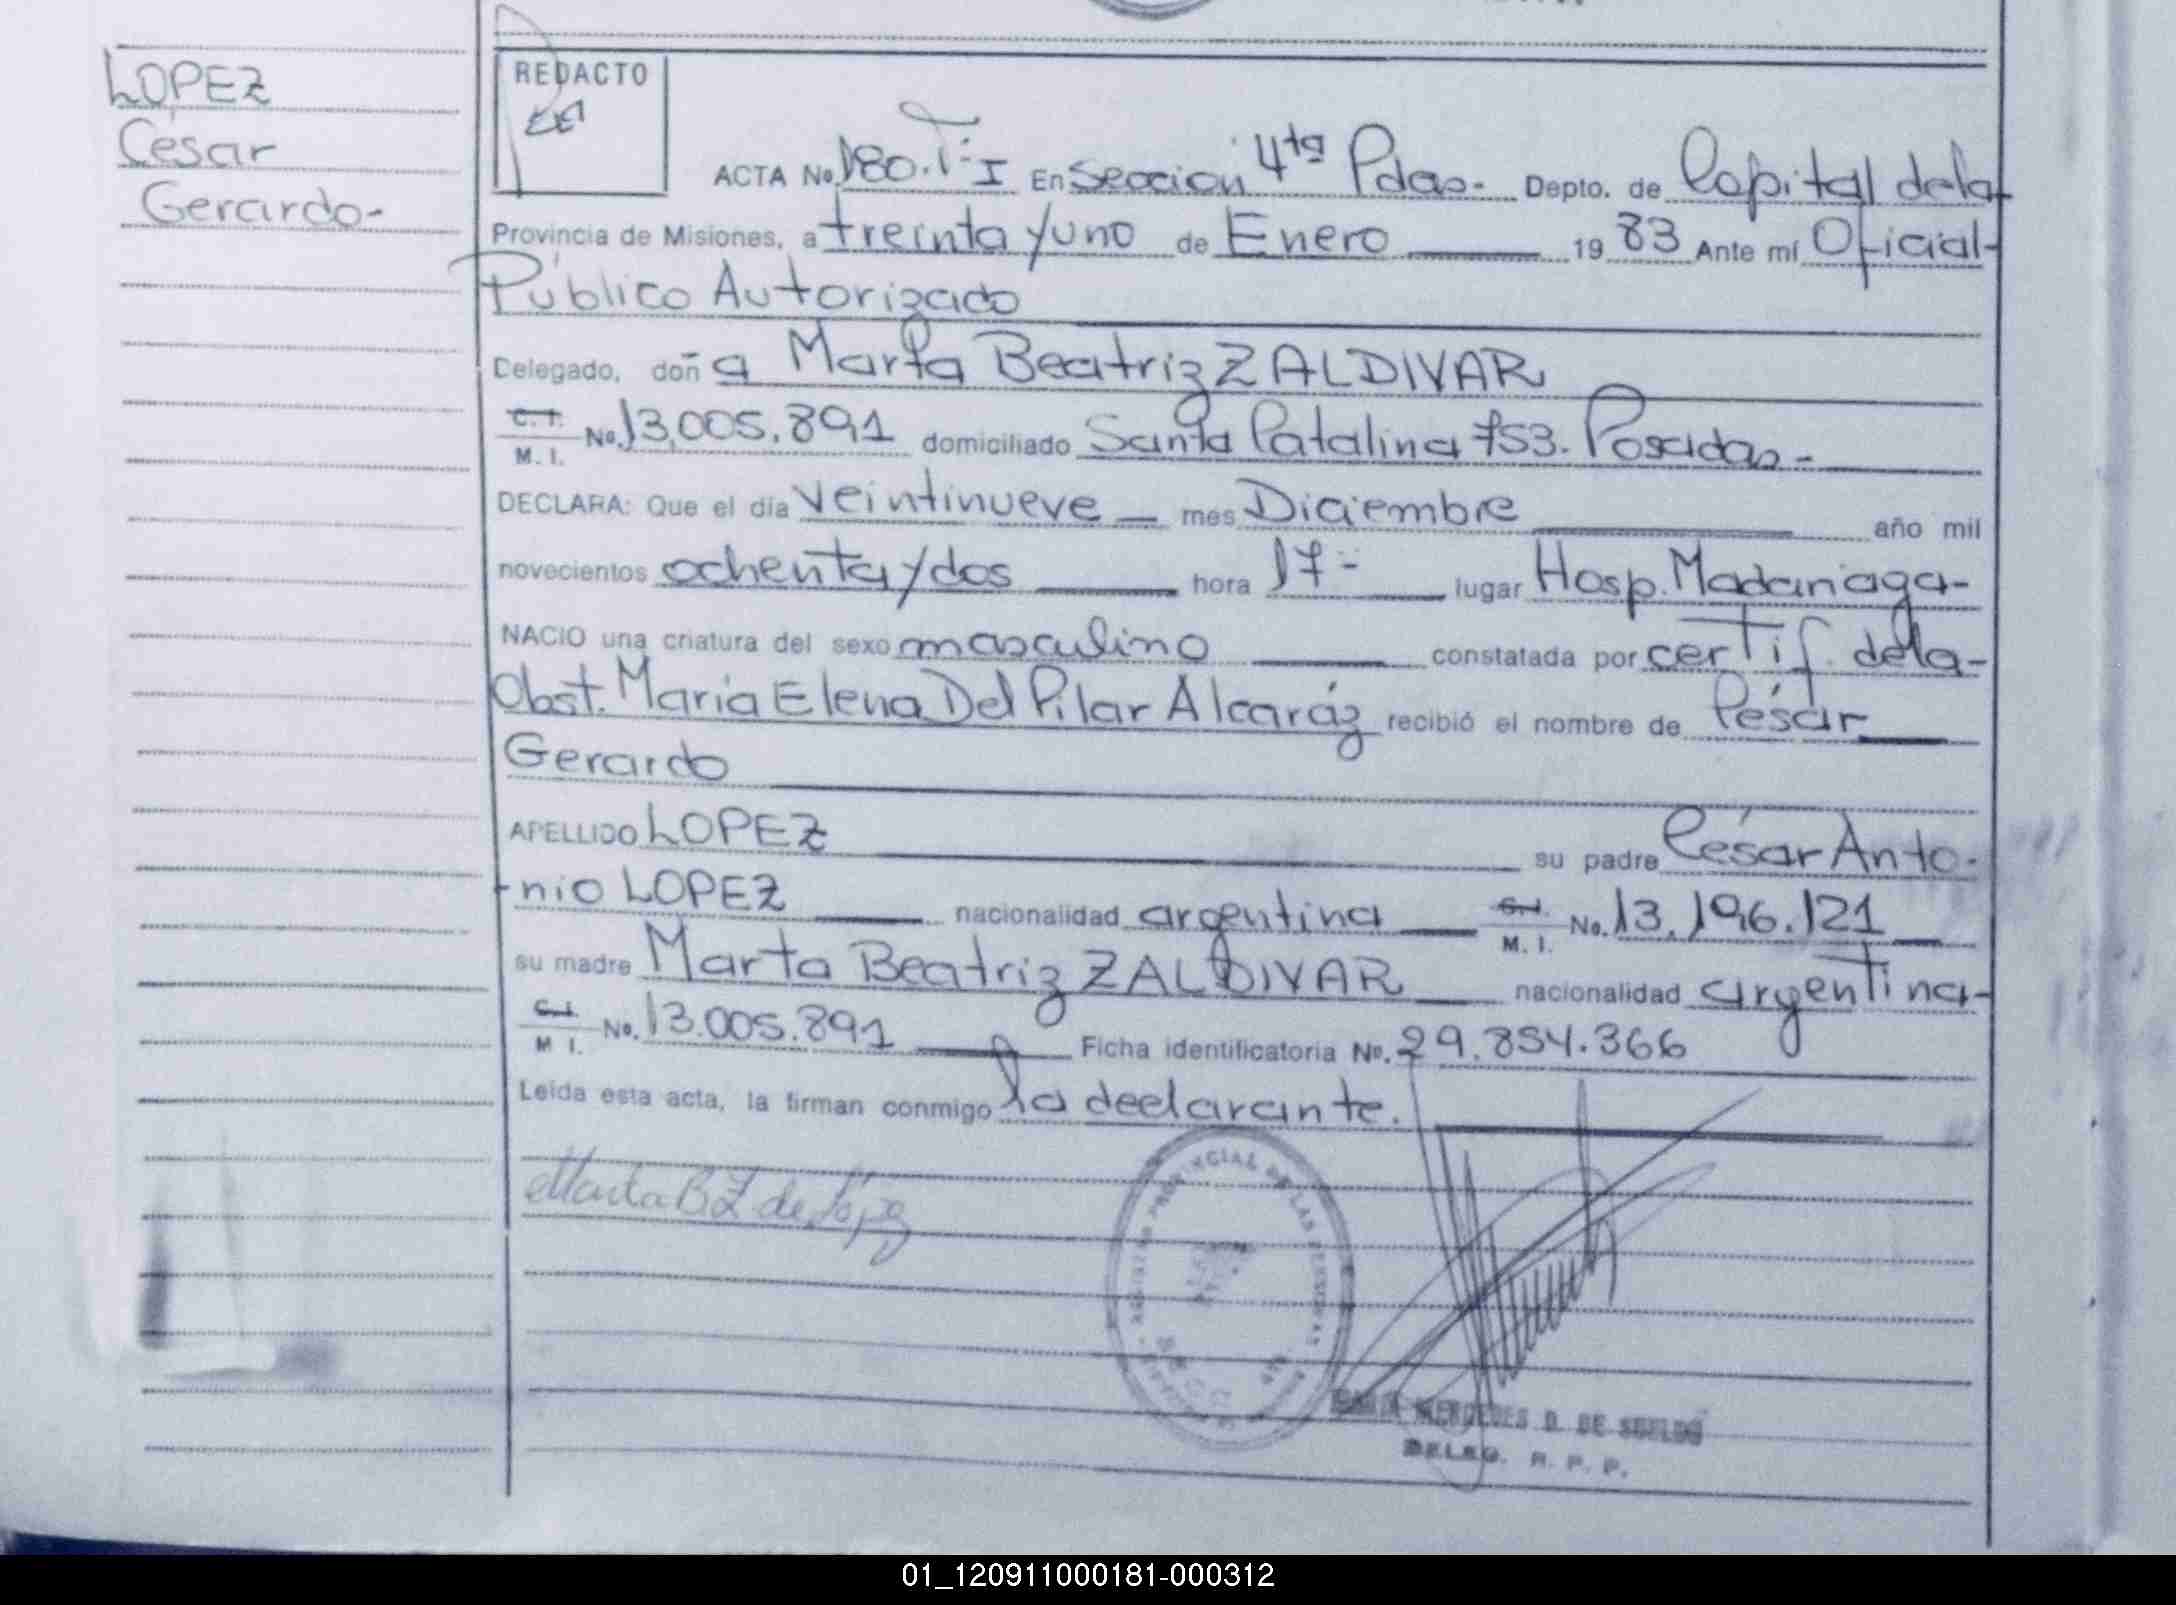 LOPEZ
César
Gerardo-
REDACTO
ACTA No. 180. Tº I En Sección 4ta Pdas.- Depto. de Capital de la
Provincia de Misiones, a treinta y uno de Enero 19 83 Ante mí Oficial-
Público Autorizado
Delegado, doñ a Marta Beatriz ZALDIVAR
C. I.
M. I. No. 13.005.891 domiciliado Santa Catalina 753. Posadas-
DECLARA: Que el día veintinueve mes Diciembre año mil
novecientos ochenta y dos hora 17- lugar Hosp. Madariaga-
NACIO una criatura del sexo masculino constatada por certif. de la-
Obst. María Elena Del Pilar Alcaráz recibió el nombre de César
Gerardo
APELLIDO LOPEZ su padre César Anto-
-nio LOPEZ nacionalidad argentina C. I.
M. I. No. 13.196.121
su madre Marta Beatriz ZALDIVAR nacionalidad argentina-
C. I.
M. I. No. 13.005.891 Ficha identificatoria No. 29.854.366
Leída esta acta, la firman conmigo la declarante.
Marta B Z de López
REGISTRO PROVINCIAL DE LAS PERSONAS
MERCEDES D. DE SUELDO
DELEG. R. P. P.
01_120911000181-000312